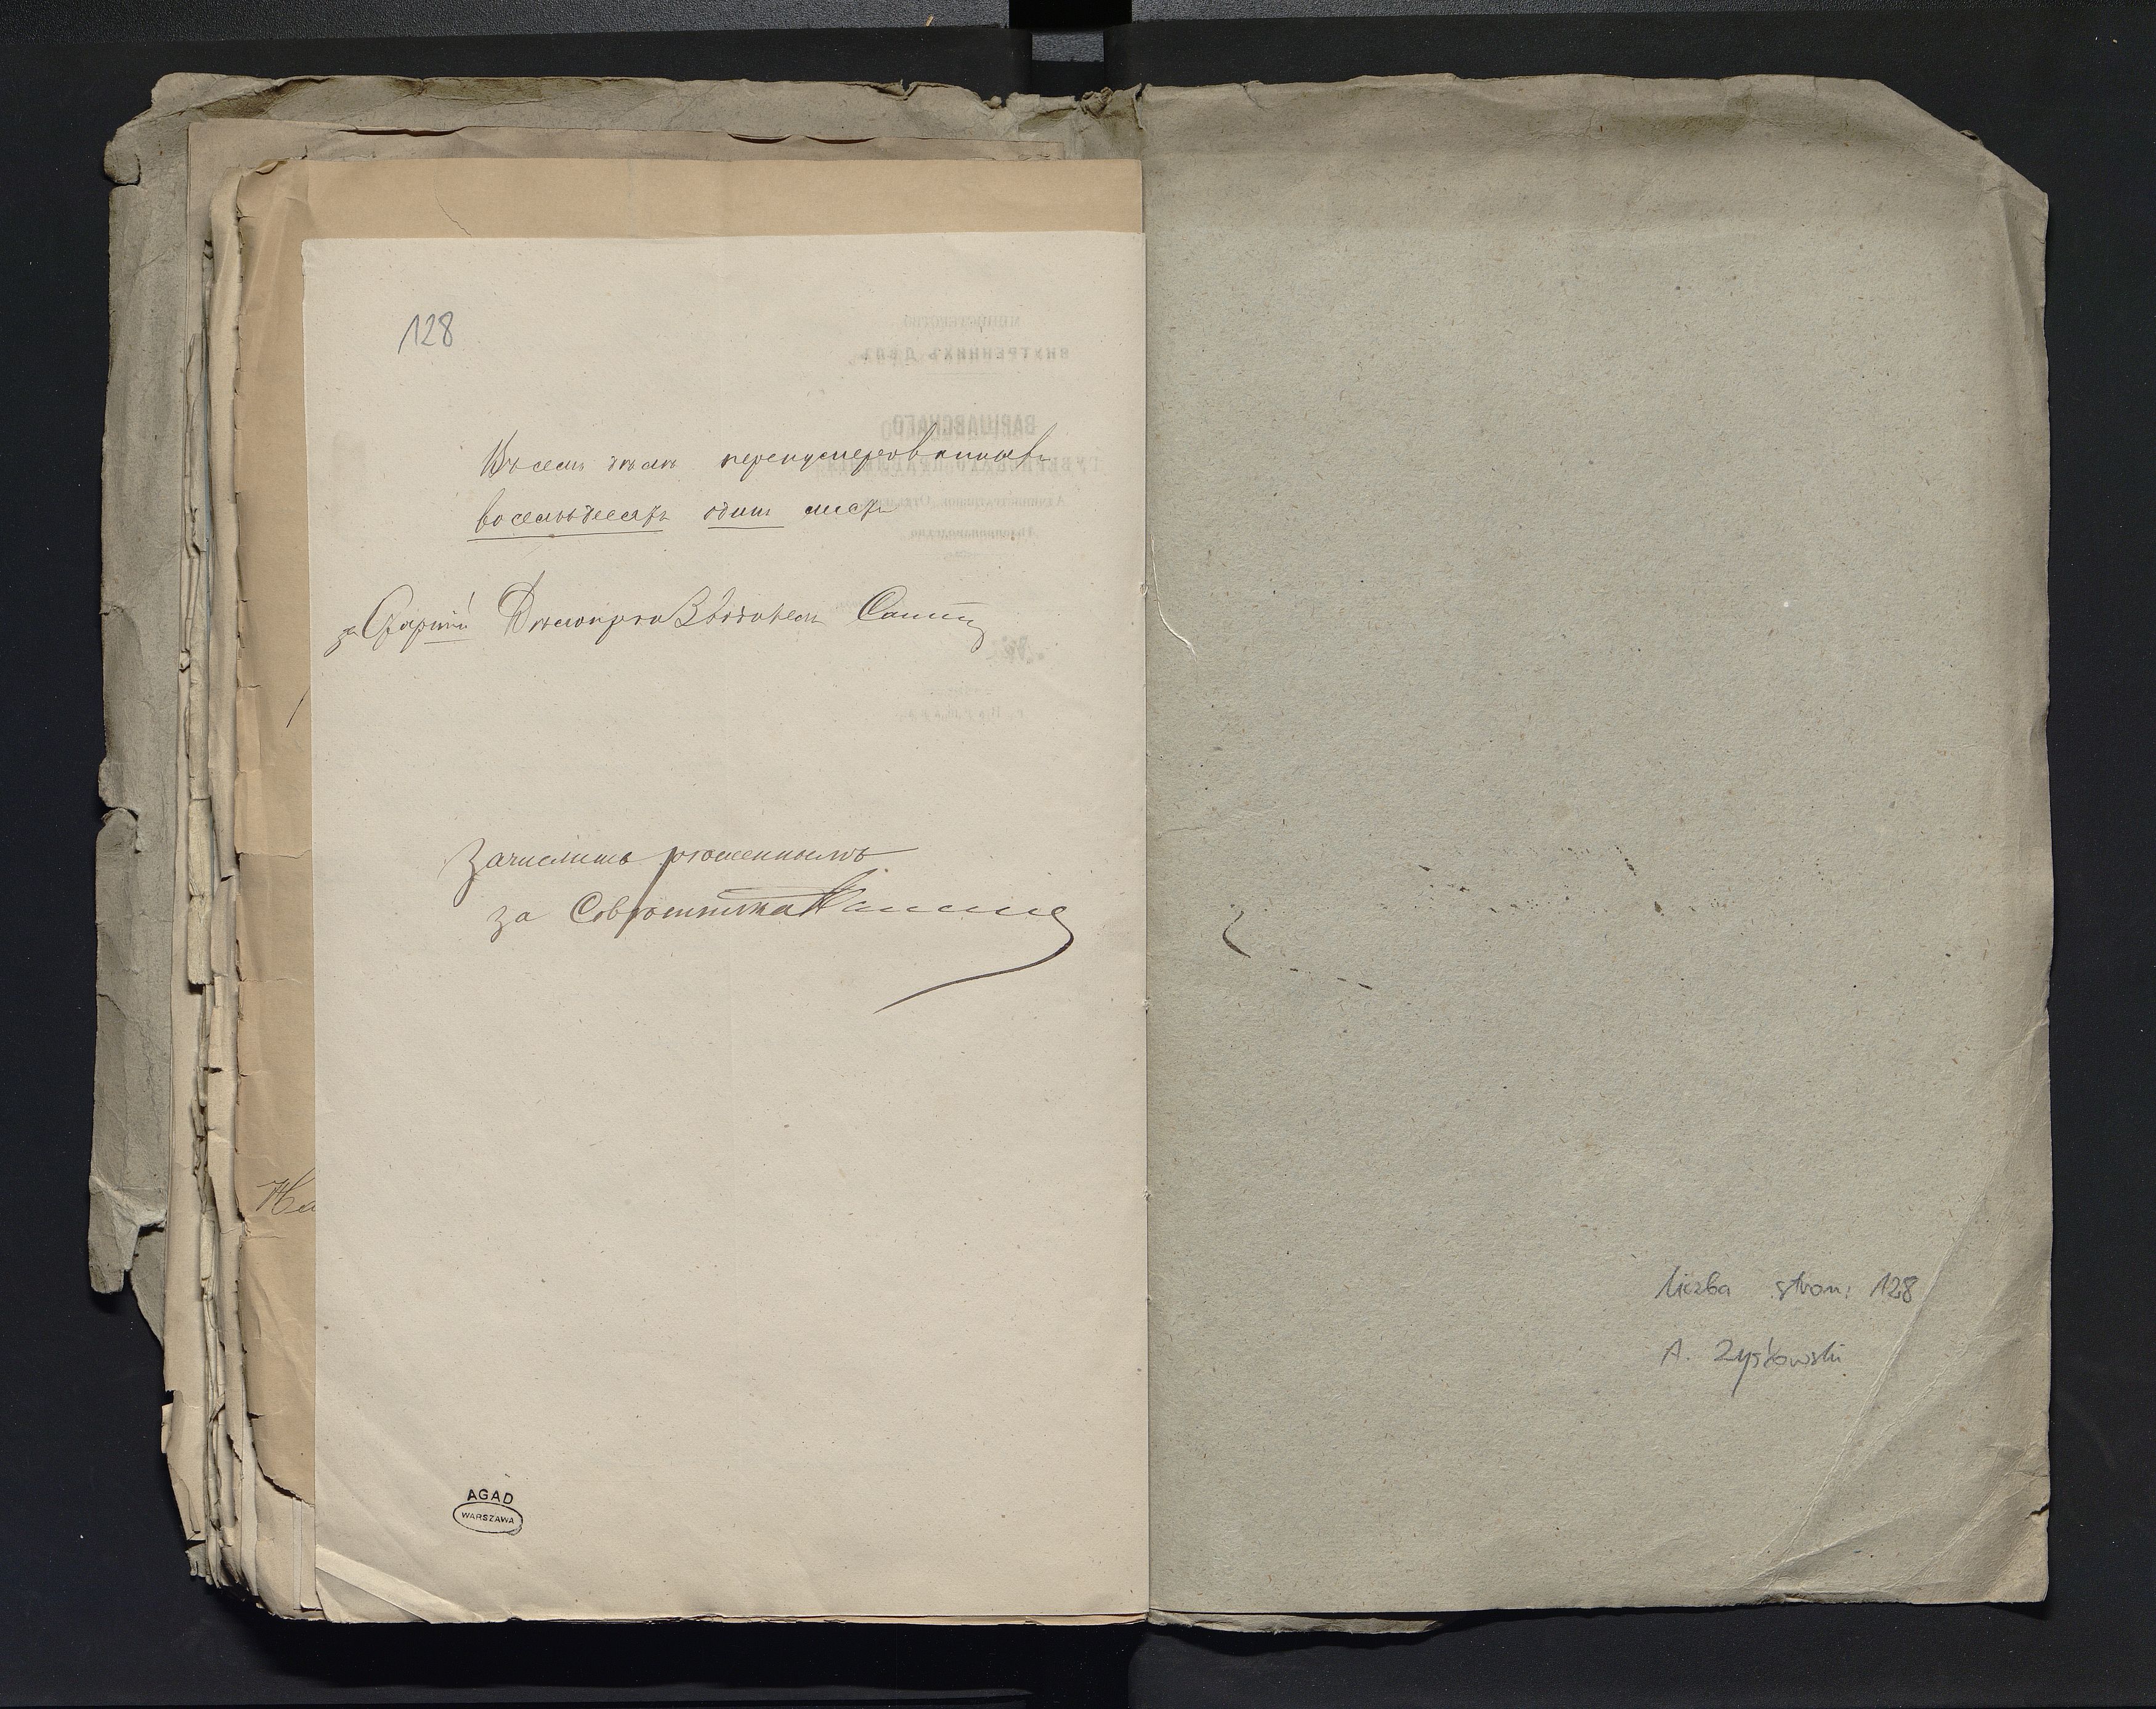 128
Въ семъ дѣлѣ перенумерованныхъ
восемьдесятъ одинъ листъ
за Старшій Дѣлопроизводитель
Зачислить рѣшеннымъ
за Совѣтника
На
AGAD
WARSZAWA
liczba stron: 128
A. Zyśkowski